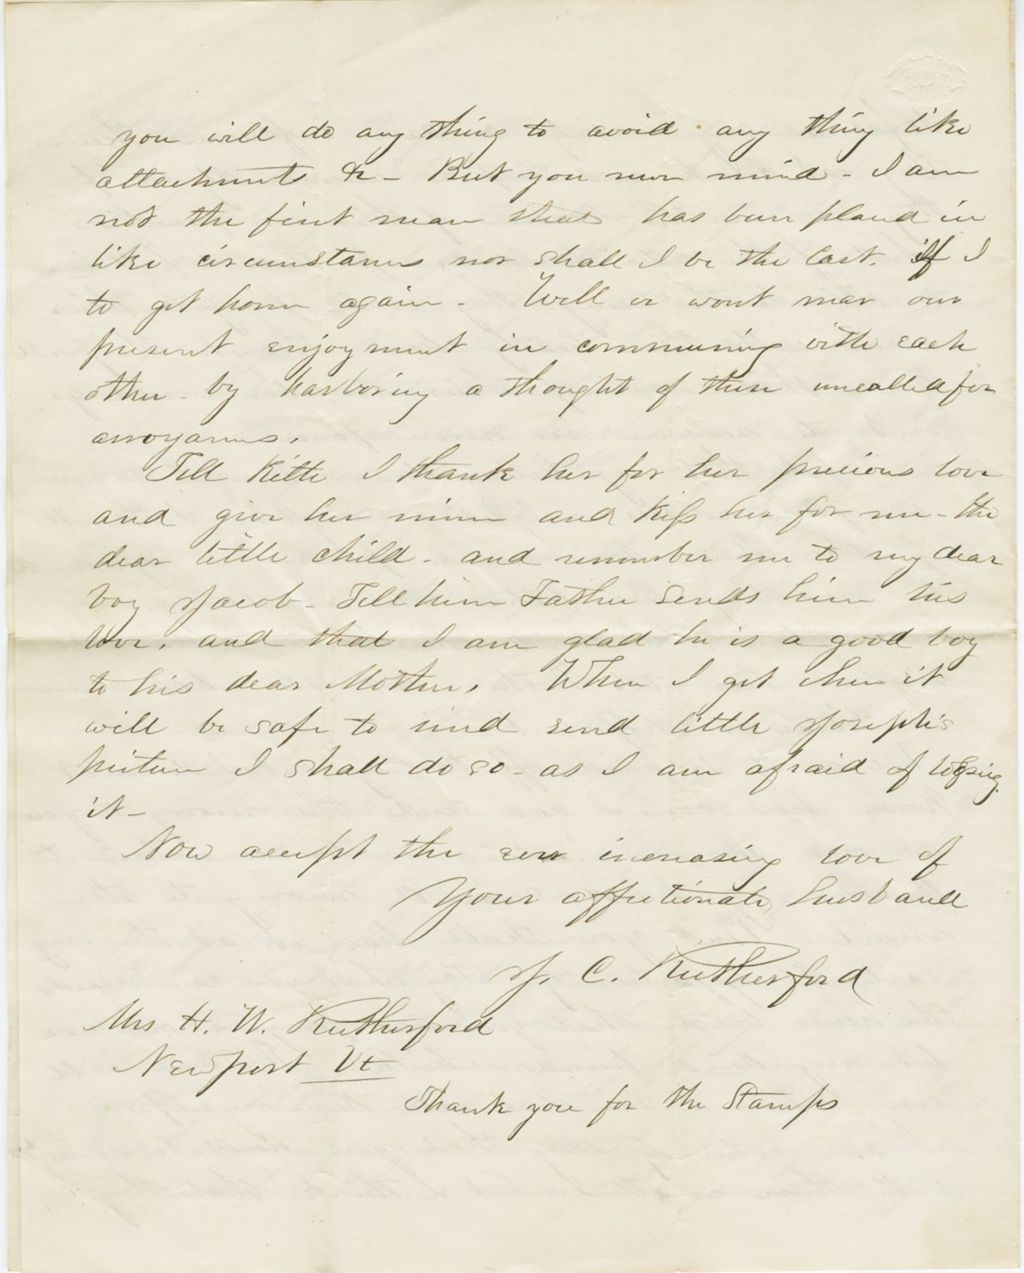 you will do any thing to avoid any thing like
attachments &c - But you never mind - I am
not the first man that has been placed in
like circumstances nor shall I be the last. if I
to get home again - Well we wont mar our
present enjoyment in communing with each
other - by harboring a thought of these uncalled for
annoyances.
Tell Kitte I thank her for her precious love
and give her mine and Kiss her for me - the
dear little child - and remember me to my dear
boy Jacob - Tell him Father sends him his
love, and that I am glad he is a good boy
to his dear Mother. When I get where it
will be safe to send little Joseph's
picture I shall do so - as I am afraid of loosing
it -
Now accept the ever increasing love of
Your affectionate husband
J. C. Rutherford
Mrs H. W. Rutherford
Newport Vt
Thank you for the Stamps